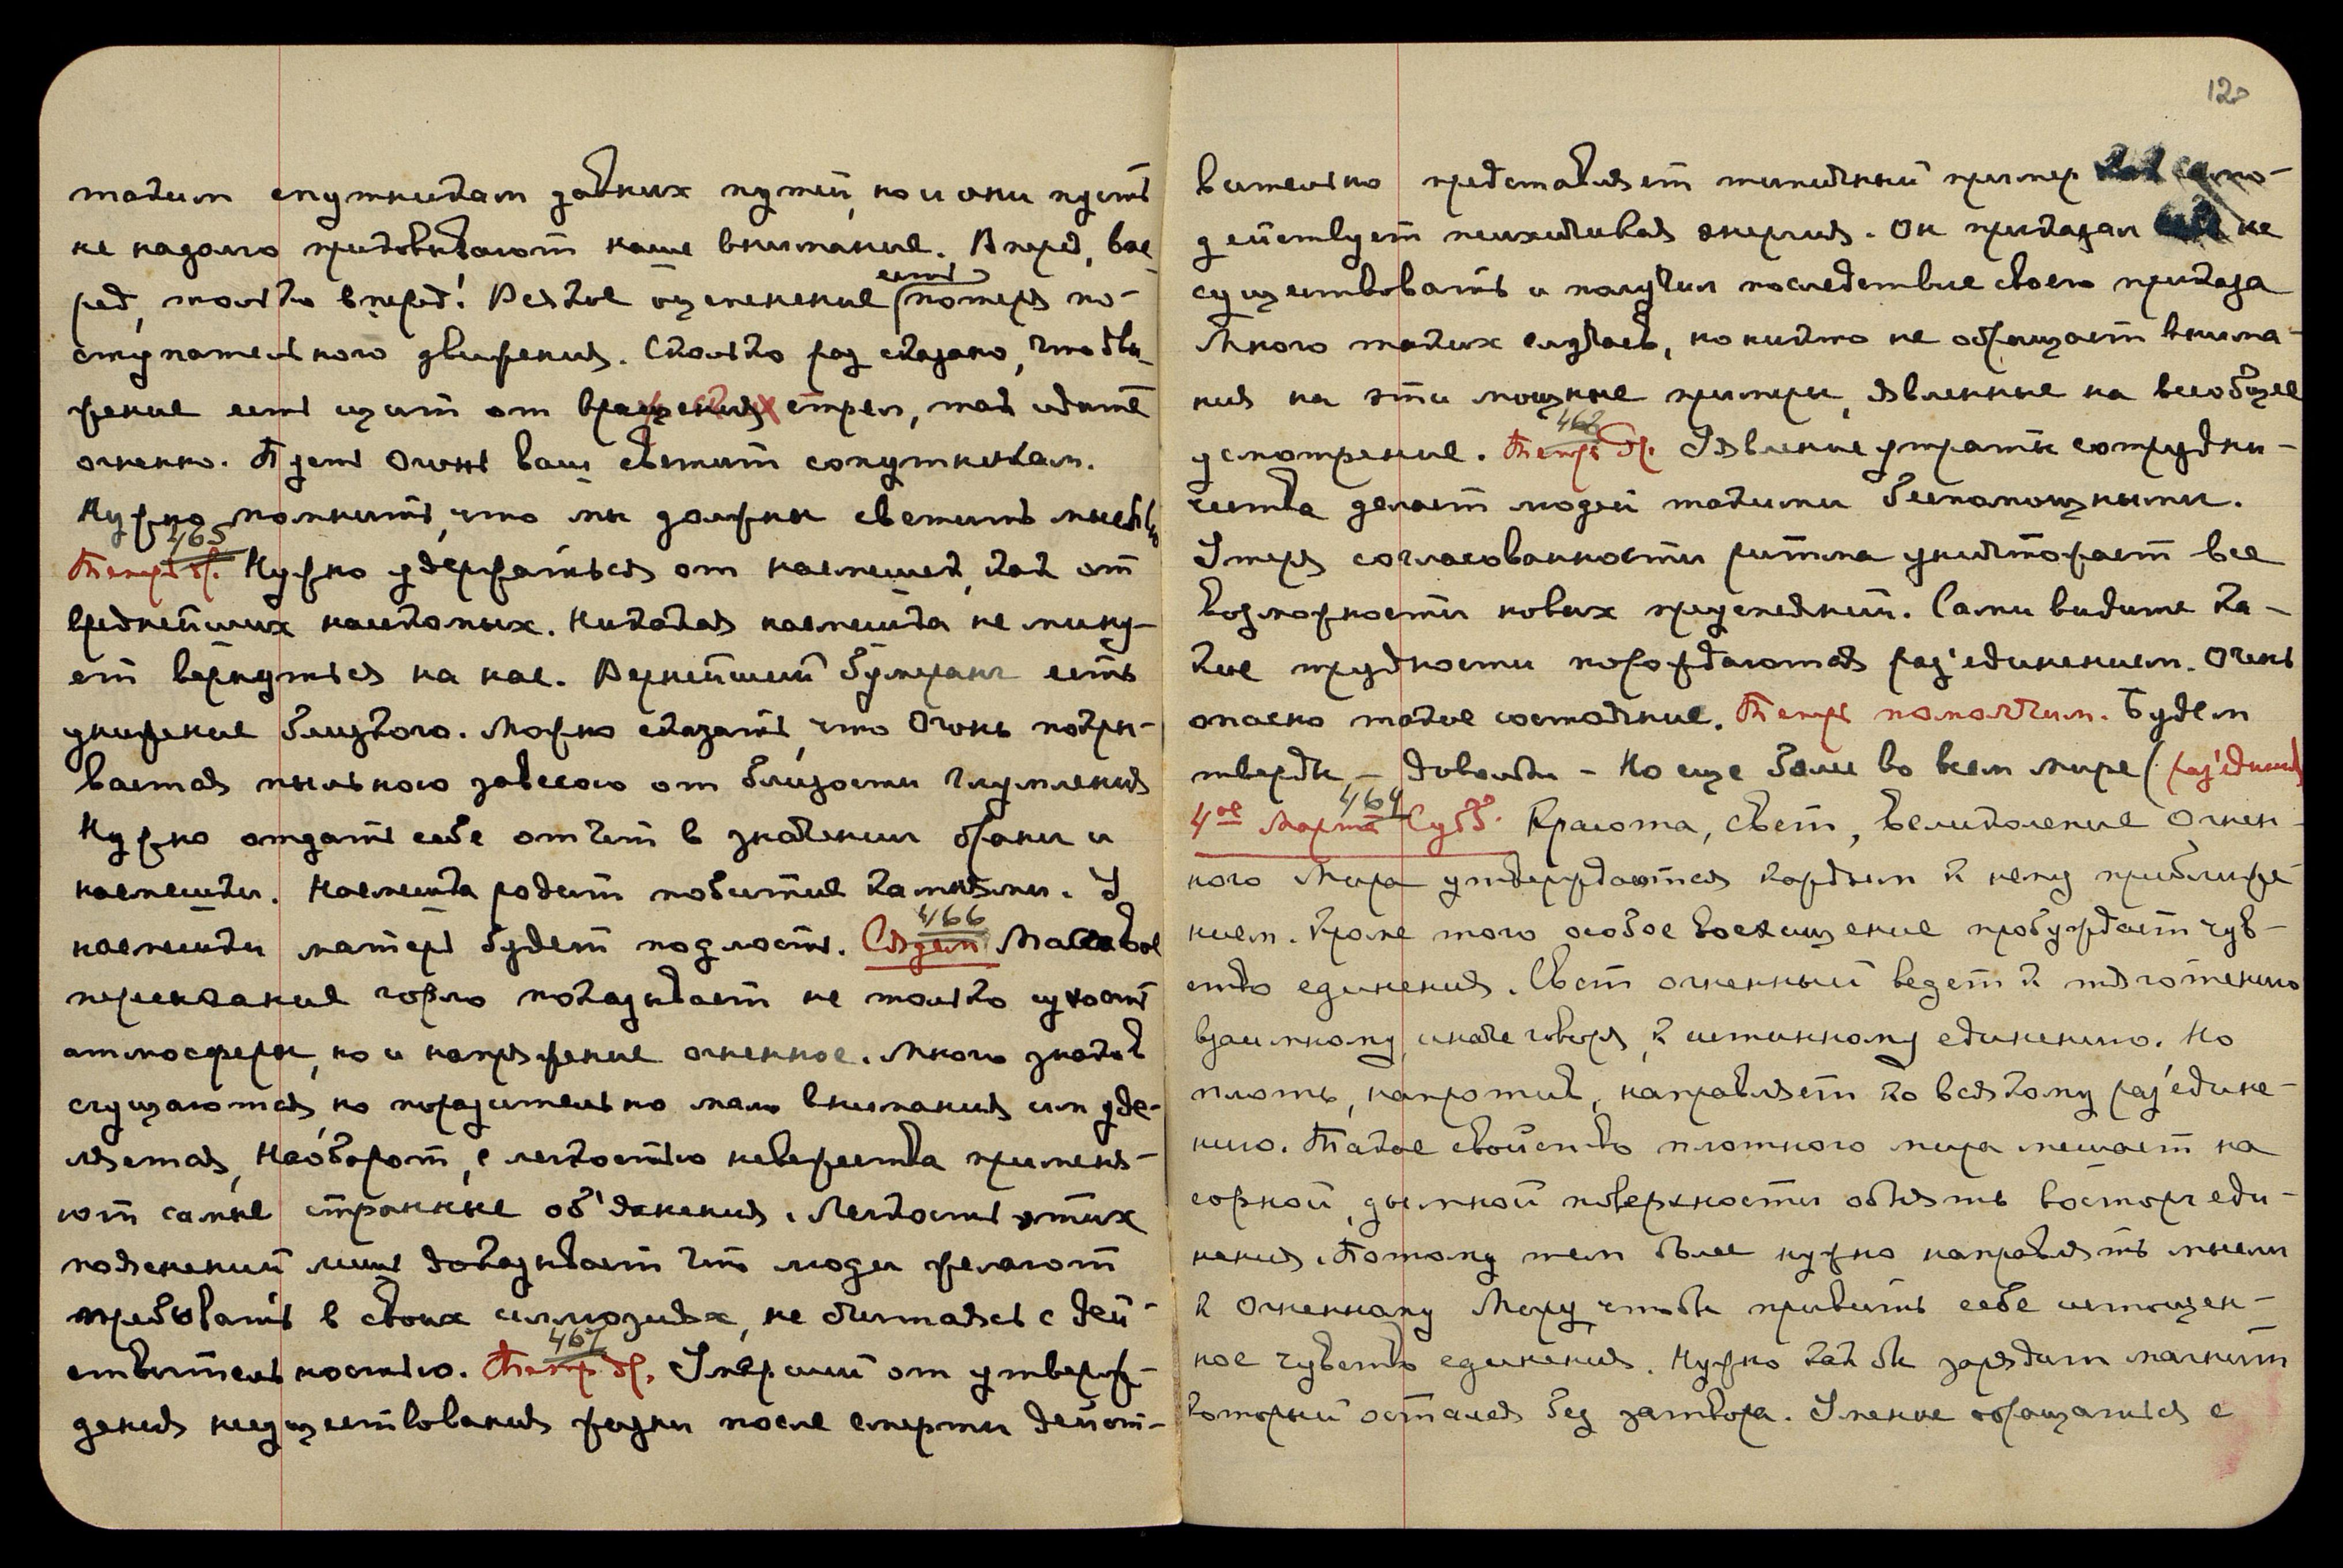 таким спутникам давних путей, но и они пусть
не надолго приковывают наше внимание. Вперед, впе-
ред, только вперед! Всякое оцепенение есть потеря по-
ступательного движения. Сколько раз сказано, что дви-
жение есть щит от вращения стрел, так идите
огненно. Пусть Огонь ваш светит сопутникам.
Нужно помнить, что мы должны светить
465
Теперь др. Нужно удержаться от насмешек, как от
вреднейших насекомых. Никакая насмешка не мину-
ет вернуться на нас. Вернейший бумеранг есть
унижение близкого. Можно сказать, что Огонь покры-
вается пыльного завесою от близости глумления
Нужно отдать себе отчет в значении брани и
насмешки. Насмешка родит побитие камнями. У
насмешки матерь будет подлость.
466
Массовое
пересыхание горла показывает не только сухость
атмосферы, но и напряжение огненное. Много знаков
сгущаются, но поразительно мало внимания им уде-
ляется, Наоборот, с легкостью невежества применя-
ют самые странные об'яснения. Легкость этих
пояснений лишь доказывает что люди желают
пребывать в своих иллюзиях, не считаясь с дей-
ствительностью.
467
Теперь др. Умерший от утверж-
дения несуществования жизни после смерти дейст-
120
вительно представляет типичный пример как само-
действует психическая энергия. Он приказал не
существовать и получил последствие своего приказа
Много таких случаев, но никто не обращает внима-
ния на эти мощные примеры, явленные на всеобщее
усмотрение.
468
Теперь др. Явление утраты сотрудни-
чества делает людей такими беспомощными.
Утеря согласованности ритма уничтожает все
возможности новых преуспеяний. Сами видите ка-
кие трудности порождаются раз'единением. Очень
опасно такое состояние. Теперь помолчим. Будем
тверды – довольны – Но еще более во всем мире (раз'единение
464
4ое Марта Субб. Красота, Свет, Великолепие Огнен-
ного Мира утверждаются каждым к нему приближе-
нием. Кроме того особое восхищение пробуждает чув-
ство единения. Свет огненный ведет к тяготению
взаимному, иначе говоря, к истинному единению. Но
плоть, напротив, направляет ко всякому раз'едине-
нию. Такое свойство плотного мира мешает на
сорной, дымной поверхности объять восторг еди-
нения. Потому тем более нужно направлять мысли
к Огненному Миру, чтобы привить себе истощен-
ное чувство единения. Нужно как бы зарядить магнит
который остался без затвора. Умение обращаться с